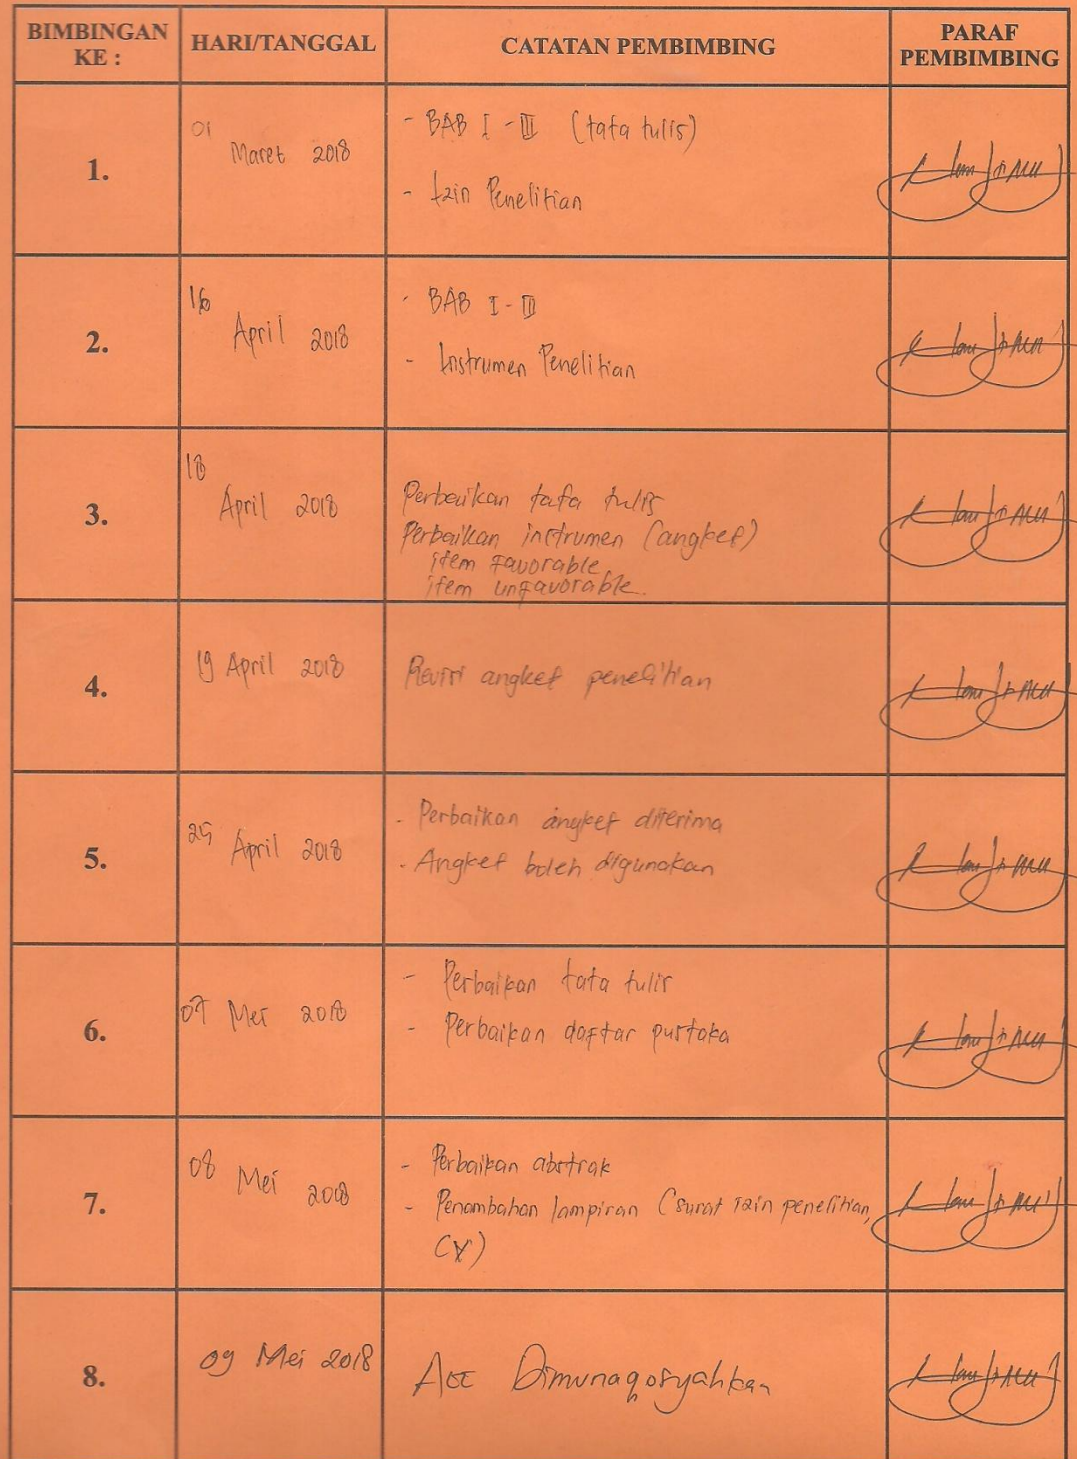 BIMBINGAN KE :
HARI/TANGGAL
CATATAN PEMBIMBING
PARAF PEMBIMBING
1.
01 Maret 2018
- BAB I - III (tata tulis)
- Izin Penelitian
2.
16 April 2018
- BAB I - III
- Instrumen Penelitian
3.
18 April 2018
Perbaikan tata tulis
Perbaikan instrumen (angket)
item favorable
item unfavorable.
4.
19 April 2018
Revisi angket penelitian
5.
25 April 2018
- Perbaikan angket diterima
- Angket boleh digunakan
6.
07 Mei 2018
- Perbaikan tata tulis
- Perbaikan daftar pustaka
7.
08 Mei 2018
- Perbaikan abstrak
- Penambahan lampiran (surat izin penelitian,
CV)
8.
09 Mei 2018
Acc Dimunaqosyahkan